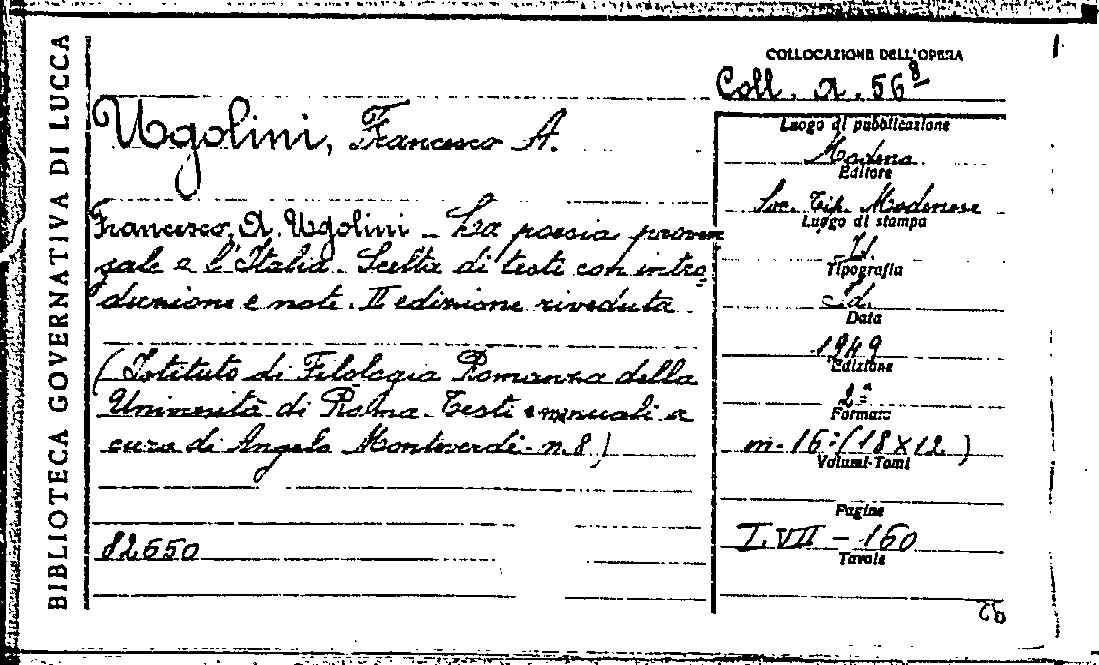 BIBLIOTECA GOVERNATIVA DI LUCCA
COLLOCAZIONE DELL'OPERA
Coll. A. 56 8
Ugolini, Francesco A.
Francesco A. Ugolini - La poesia proven
zale e l'Italia. Scelta di testi con intro
duzione e note. II edizione riveduta
(Istituto di Filologia Romanza della
Università di Roma - Testi e manuali a
cura di Angelo Monteverdi - n. 8)
82650
Luogo di pubblicazione
Modena
Editore
Soc. Tip. Modenese
Luogo di stampa
Id.
Tipografia
Data
1949
Edizione
2ª
Formato
in-16° (18x12)
Volumi-Tomi
Pagine
VII - 160
Tavole